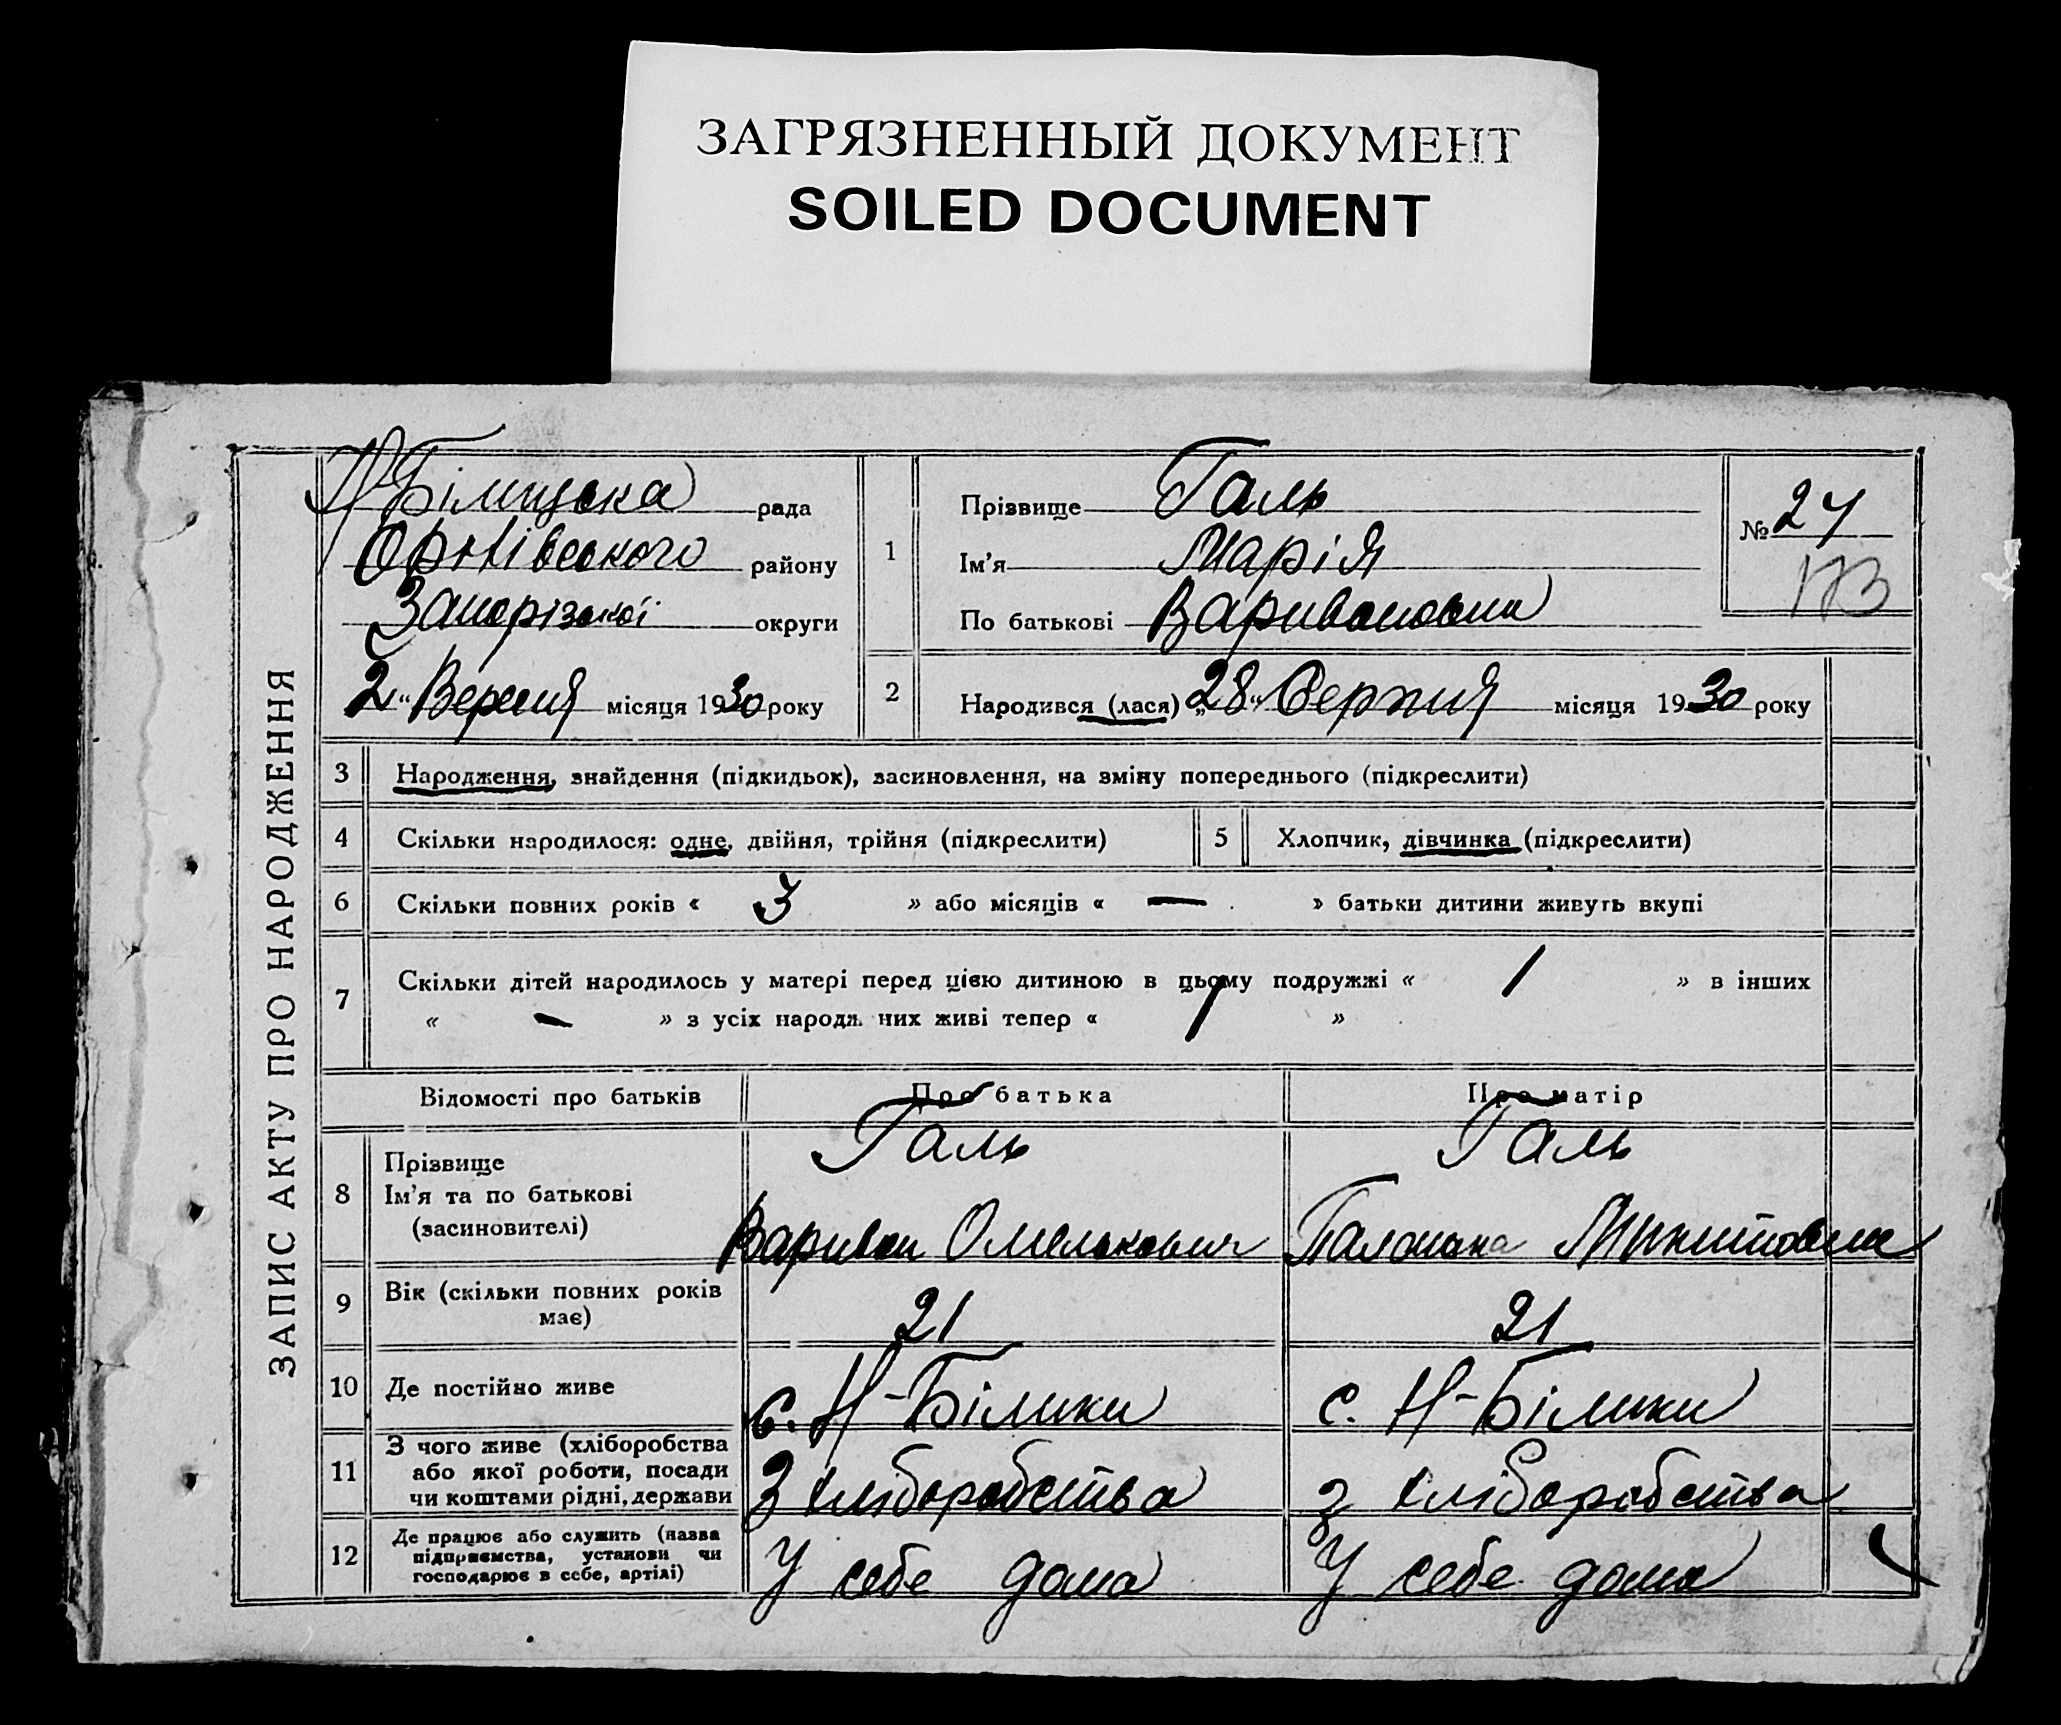 ЗАГРЯЗНЕННЫЙ ДОКУМЕНТ
SOILED DOCUMENT
ЗАПИС АКТУ ПРО НАРОДЖЕННЯ
рада
району
Запорізької округи
2 " Вересня місяця 1930 року
1
Прізвище Галь
Ім'я Марія
По батькові Варивоновна
№ 24
173
2
Народився (лася) „28" Серпня місяця 1930 року
3 Народження, знайдення (підкидьок), засиновлення, на зміну попереднього (підкреслити)
4 Скільки народилося: одне, двійня, трійня (підкреслити) 5 Хлопчик, дівчинка (підкреслити)
6 Скільки повних років « 3 » або місяців « — » батьки дитини живуть вкупі
7 Скільки дітей народилось у матері перед цією дитиною в цьому подружжі « 1 » в інших
« — » з усіх народж них живі тепер « 1 »
Відомості про батьків Про батька Про матір
8 Прізвище Галь Галь
Ім'я та по батькові
(засиновителі) Варивон Омелькович Палонака Микитовна
9 Вік (скільки повних років має) 21 21
10 Де постійно живе с. Н-Білики с. Н-Білики
11 З чого живе (хліборобства
або якої роботи, посади
чи коштами рідні, держави З хліборобства з хліборобства
12 Де працює або служить (назва
підприємства, установи чи
господарює в себе, артілі) У себе дома У себе дома